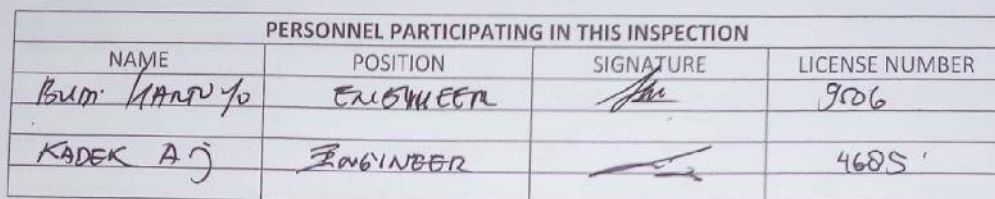 PERSONNEL PARTICIPATING IN THIS INSPECTION
NAME POSITION SIGNATURE LICENSE NUMBER
ENGINEER 9506
KADEK A J ENGINEER 4685